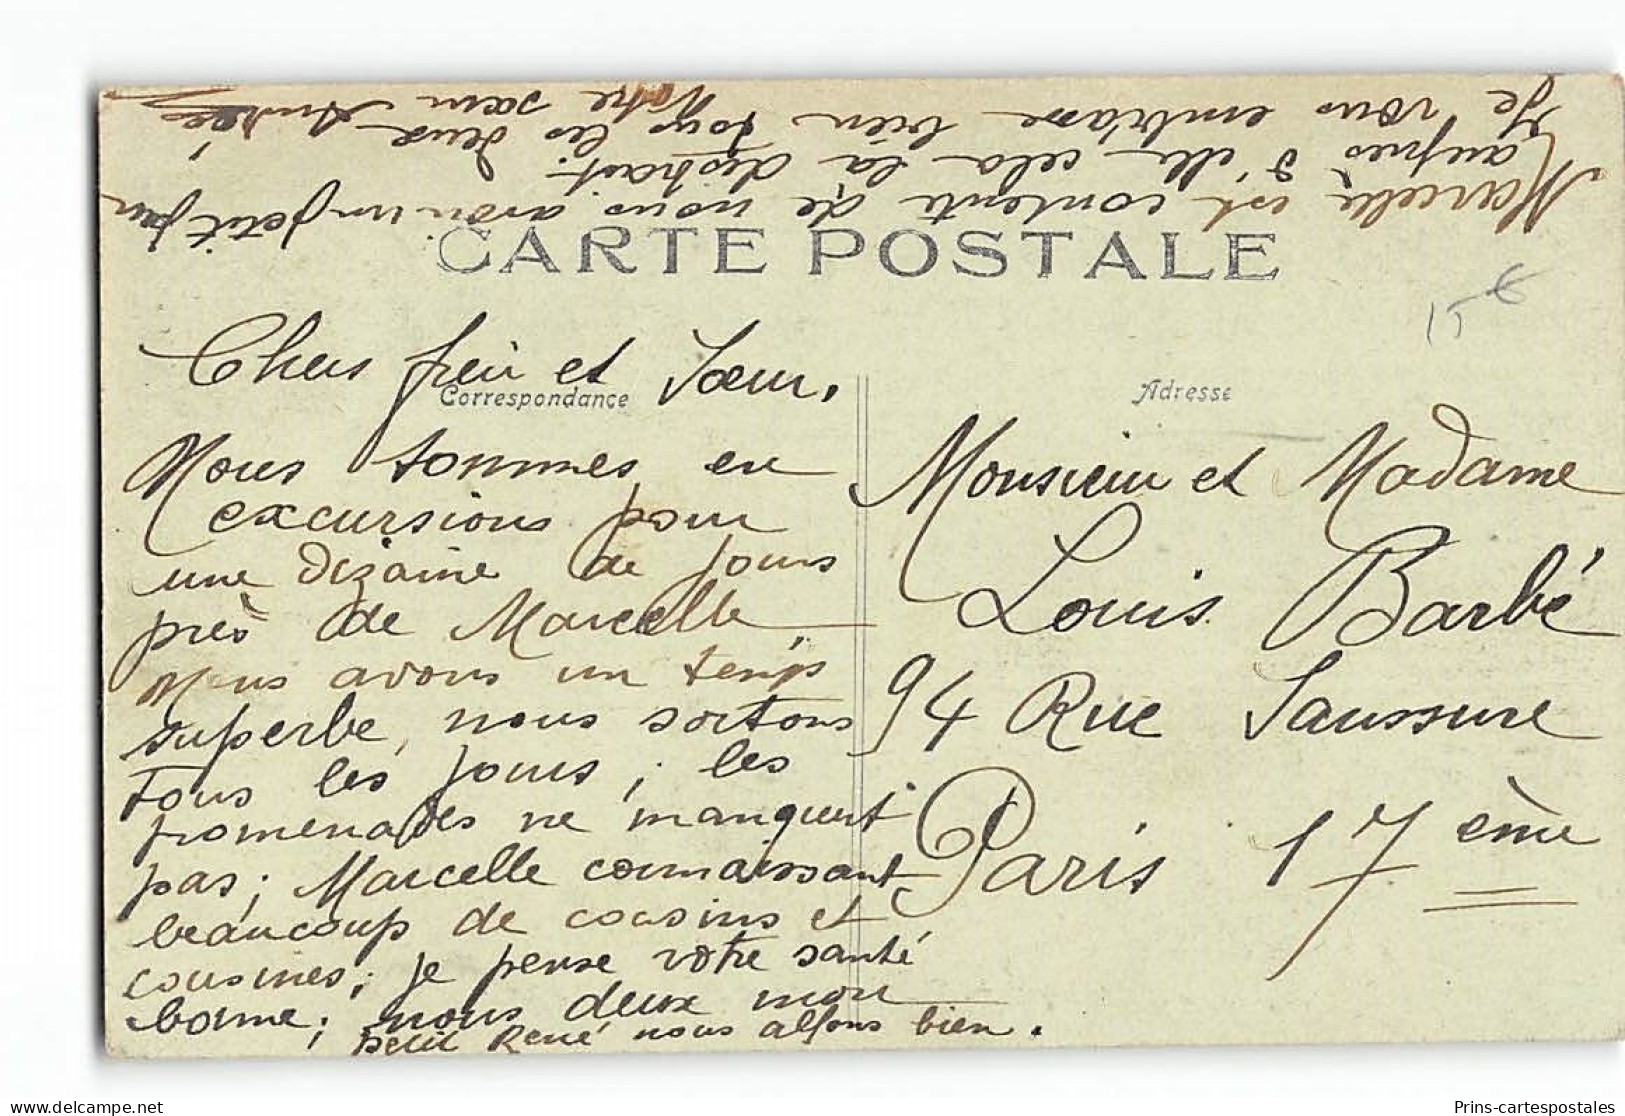 CARTE POSTALE
15 €
Correspondance
Adresse
Chers frère et Sœur,
Nous sommes en
excursions pour
une dizaine de jours
près de Marcelle,
nous avons un temps
superbe, nous sortons
tous les jours ; les
promenades ne manquent
pas ; Marcelle connaissant
beaucoup de cousins et
cousines ; je pense votre santé
bonne ; nous deux mon
petit René nous allons bien.
Marcelle est contente de nous avoir un petit peu
auprès d'elle cela la distrait.
Je vous embrasse bien tous les deux
Votre sœur Andrée
Monsieur et Madame
Louis Barbé
94 Rue Saussure
Paris 17ème
delcampe.net
Prins-cartespostales